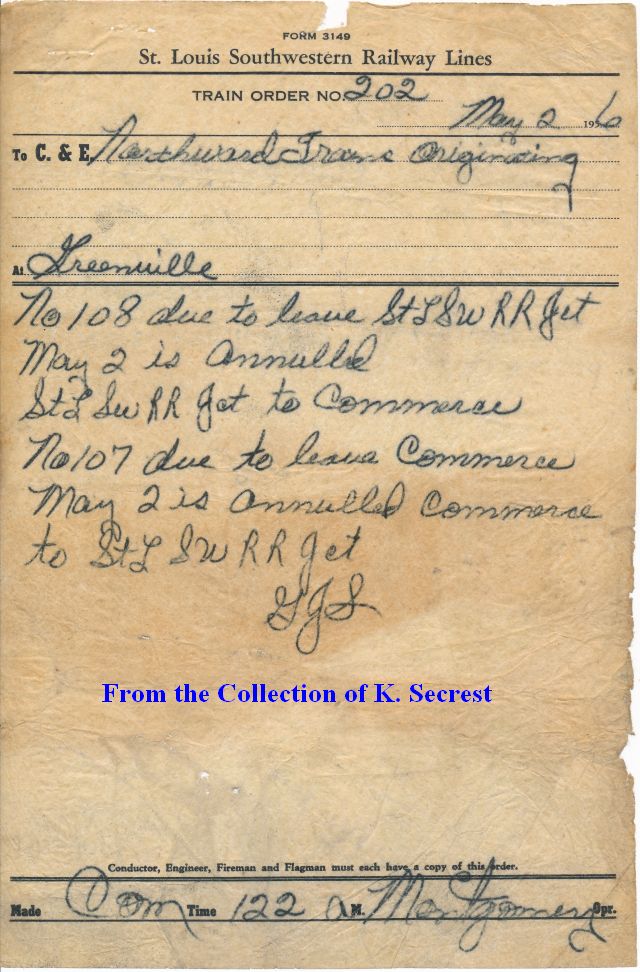 FORM 3149
St. Louis Southwestern Railway Lines
TRAIN ORDER NO. 202
May 2 1956
To C. & E. Northward Trains Originating
At Greenville
No 108 due to leave St L SW RR Jct
May 2 is annulled
St L SW RR Jct to Commerce
No 107 due to leave Commerce
May 2 is annulled Commerce
to St L SW RR Jct
GJS
From the Collection of K. Secrest
Conductor, Engineer, Fireman and Flagman must each have a copy of this order.
Made Com Time 122 A M. Montgomery Opr.